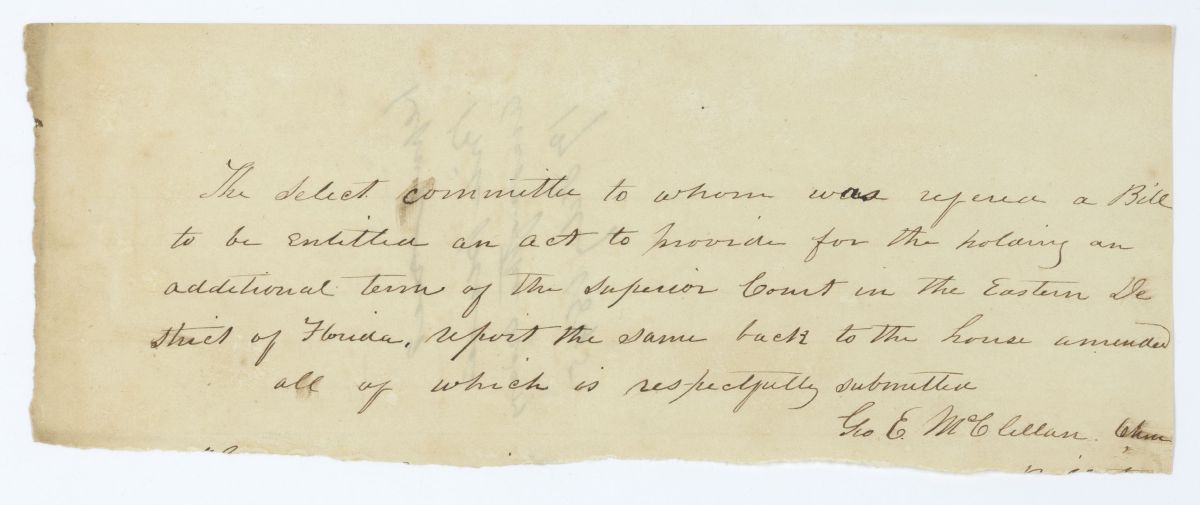 The select committee to whom was refered a Bill
to be entitled an act to provide for the holding an
additional term of the superior Court in the Eastern De
strict of Florida, report the same back to the house amended
all of which is respectfully submitted
Geo E. McClellan. Chm